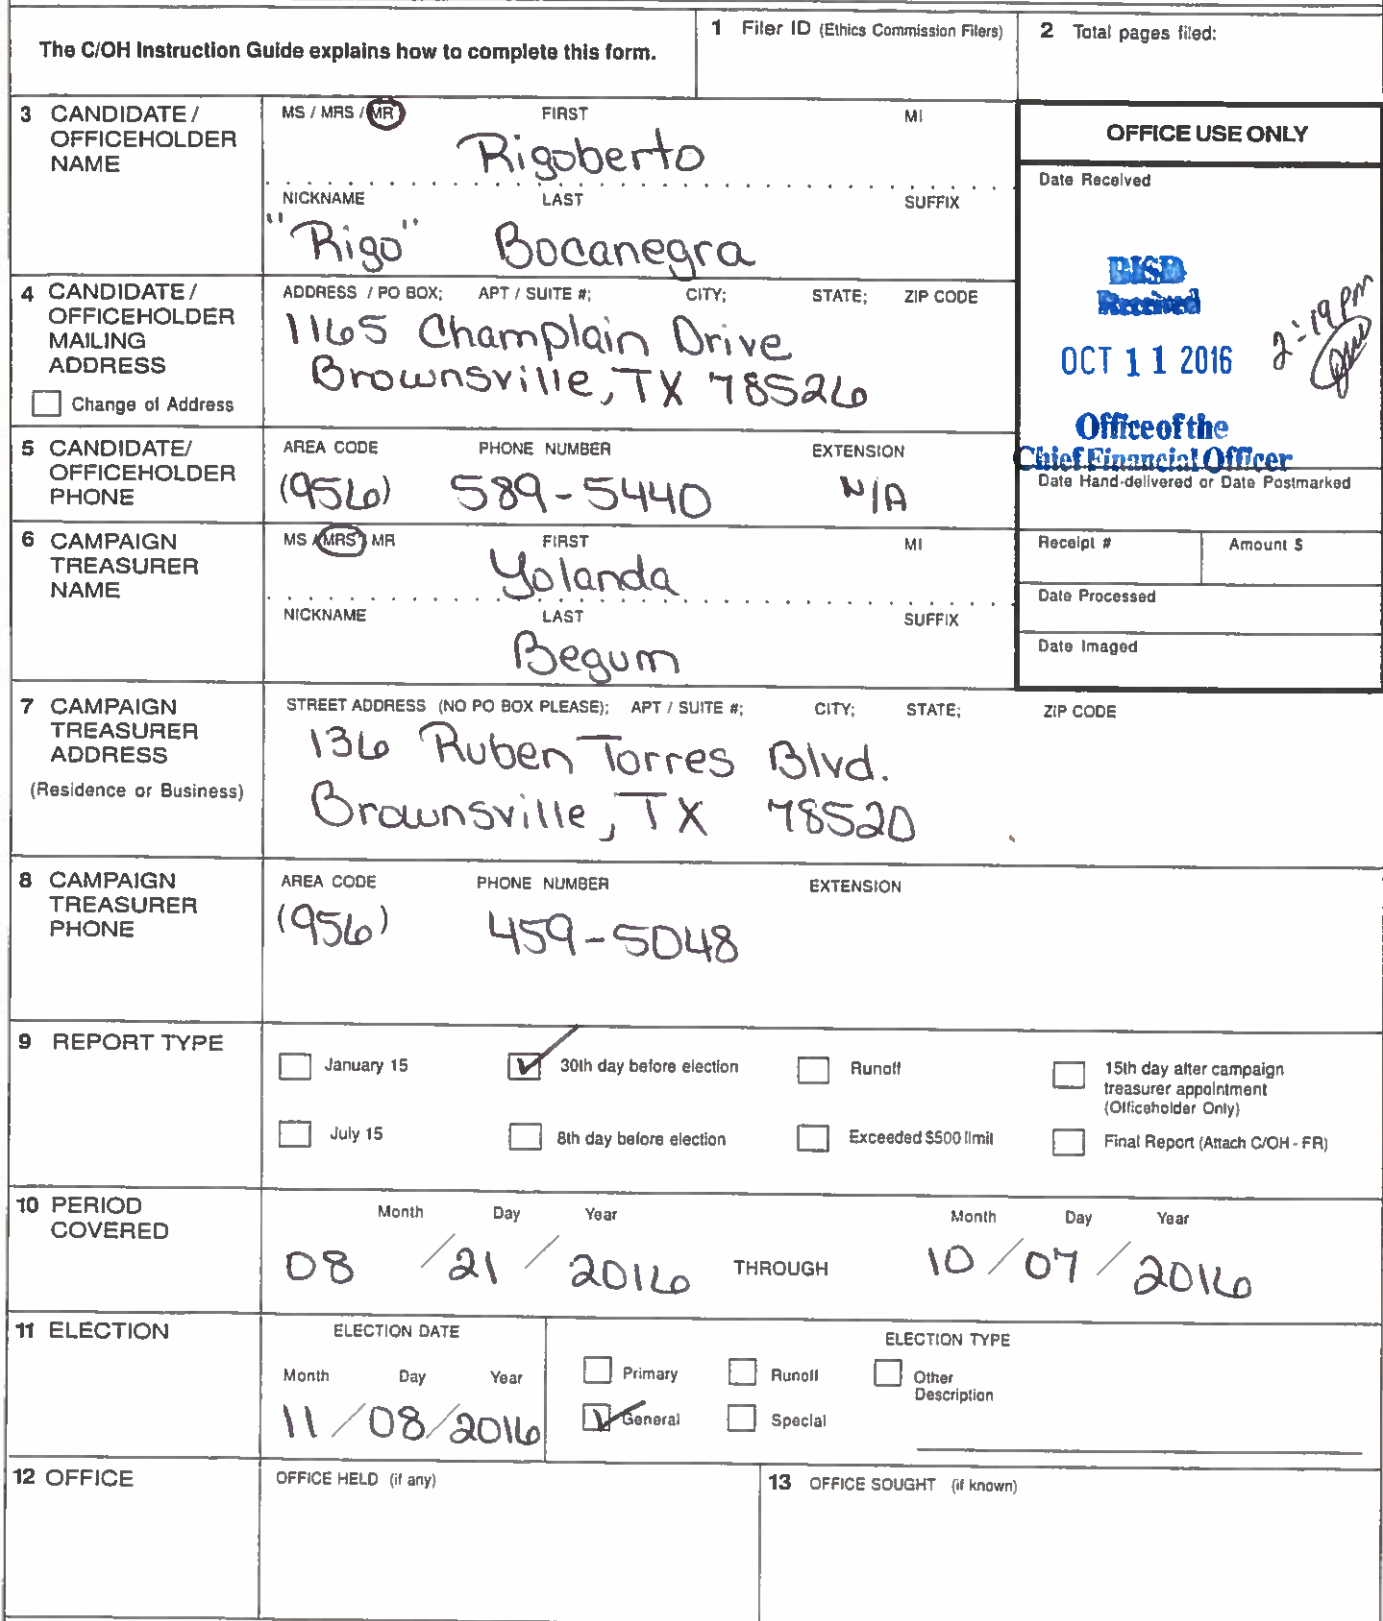 The C/OH Instruction Guide explains how to complete this form.
1 Filer ID (Ethics Commission Filers)
2 Total pages filed:
3 CANDIDATE / OFFICEHOLDER NAME
MS / MRS / MR FIRST MI
Rigoberto
NICKNAME LAST SUFFIX
"Rigo" Bocanegra
OFFICE USE ONLY
Date Received
BISD
Received
OCT 11 2016
2:19 pm
Office of the
Chief Financial Officer
Date Hand-delivered or Date Postmarked
Receipt # Amount $
Date Processed
Date Imaged
4 CANDIDATE / OFFICEHOLDER MAILING ADDRESS
Change of Address
ADDRESS / PO BOX; APT / SUITE #; CITY; STATE; ZIP CODE
1165 Champlain Drive
Brownsville, TX 78526
5 CANDIDATE/ OFFICEHOLDER PHONE
AREA CODE PHONE NUMBER EXTENSION
(956) 589-5440 N/A
6 CAMPAIGN TREASURER NAME
MS / MRS / MR FIRST MI
Yolanda
NICKNAME LAST SUFFIX
Begum
7 CAMPAIGN TREASURER ADDRESS
(Residence or Business)
STREET ADDRESS (NO PO BOX PLEASE); APT / SUITE #; CITY; STATE; ZIP CODE
136 Ruben Torres Blvd.
Brownsville, TX 78520
8 CAMPAIGN TREASURER PHONE
AREA CODE PHONE NUMBER EXTENSION
(956) 459-5048
9 REPORT TYPE
January 15 30th day before election Runoff 15th day after campaign treasurer appointment (Officeholder Only)
July 15 8th day before election Exceeded $500 limit Final Report (Attach C/OH - FR)
10 PERIOD COVERED
Month Day Year Month Day Year
08 / 21 / 2016 THROUGH 10 / 07 / 2016
11 ELECTION
ELECTION DATE
Month Day Year
11 / 08 / 2016
ELECTION TYPE
Primary Runoff Other Description
General Special
12 OFFICE
OFFICE HELD (if any)
13 OFFICE SOUGHT (if known)